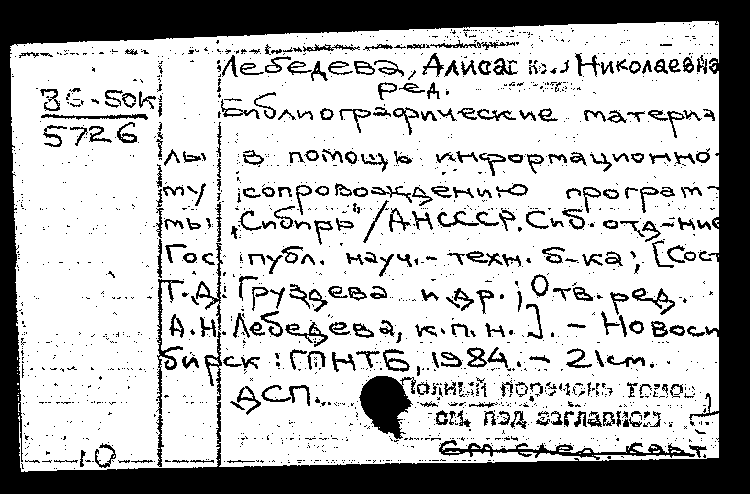 Лебедева, Алиса Николаевна
ред.
36-50к
5726
Библиографические материа
лы в помощь информационно-
му сопровождению програм-
мы „Сибирь" / АН СССР. Сиб. отд-ние
Гос публ. науч.-техн. б-ка; [Сост
Т.Д. Груздева и др.; Отв. ред.
А.Н. Лебедева, к.п.н.]. - Новоси
бирск : ГПНТБ, 1984. - 21см.
ДСП.
Полный перечень томов
см. под заглавием
См. след. карт
10